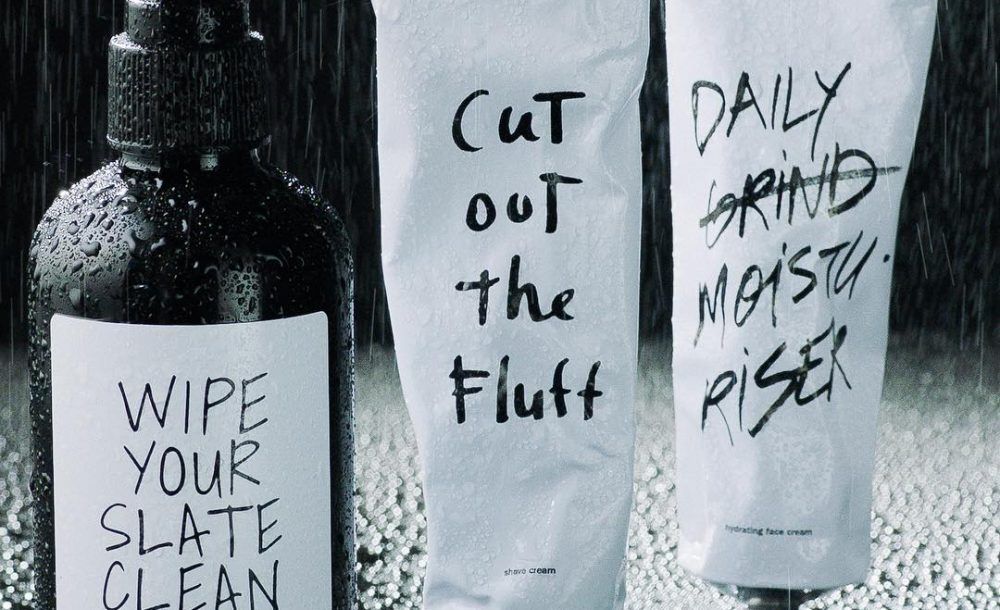 WIPE
YOUR
SLATE
CLEAN
Cut
out
the
Fluff
shave cream
DAILY
GRIND
MOiSTU.
RiSER
hydrating face cream